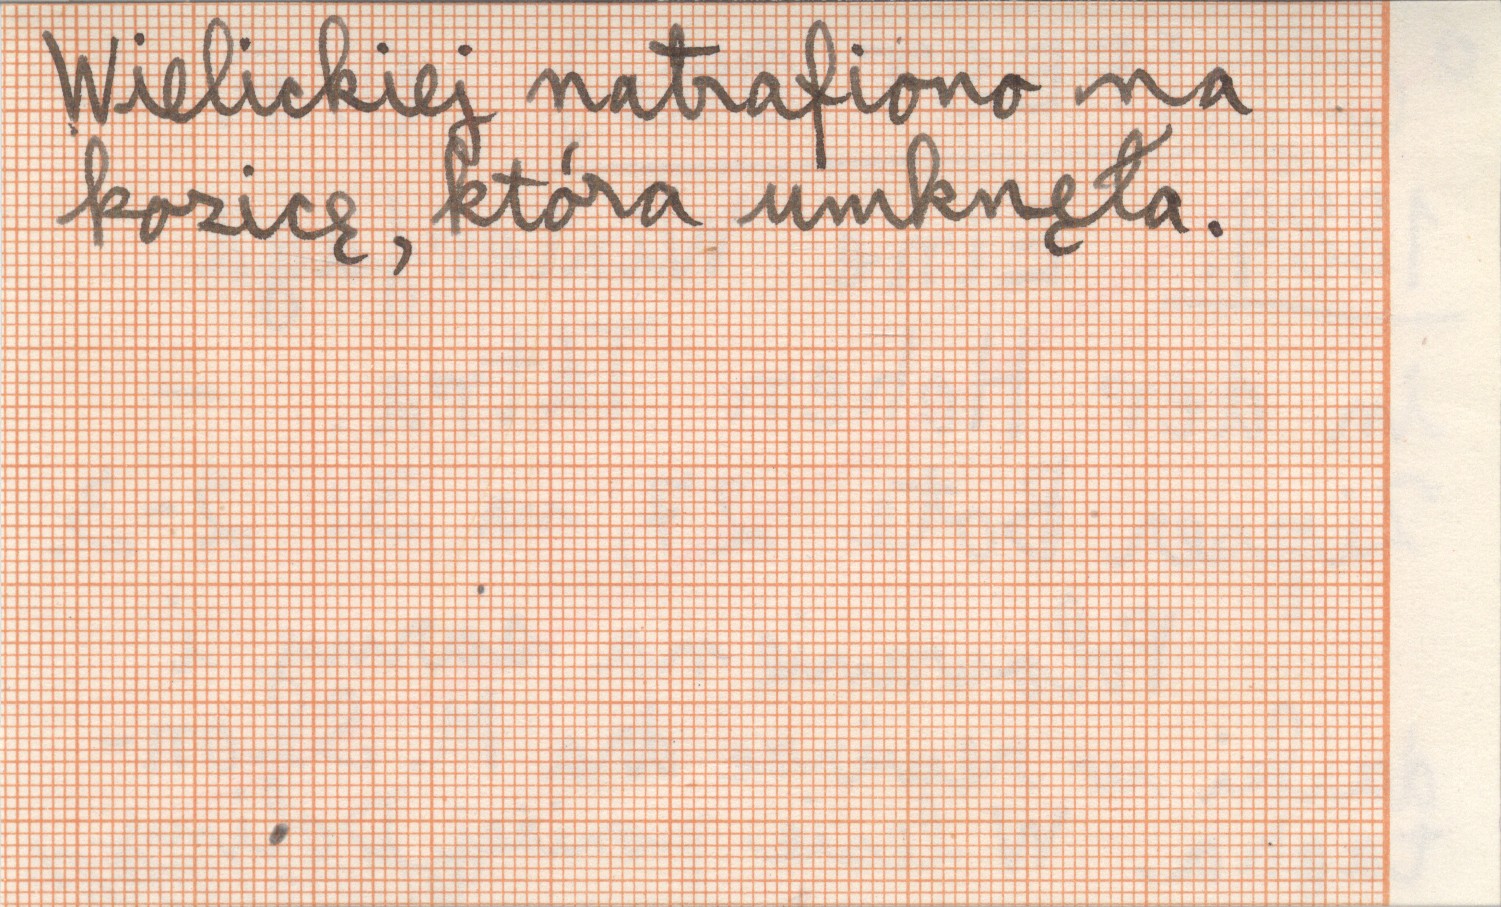 Wielickiej natrafiono na
kozicę, która umknęła.